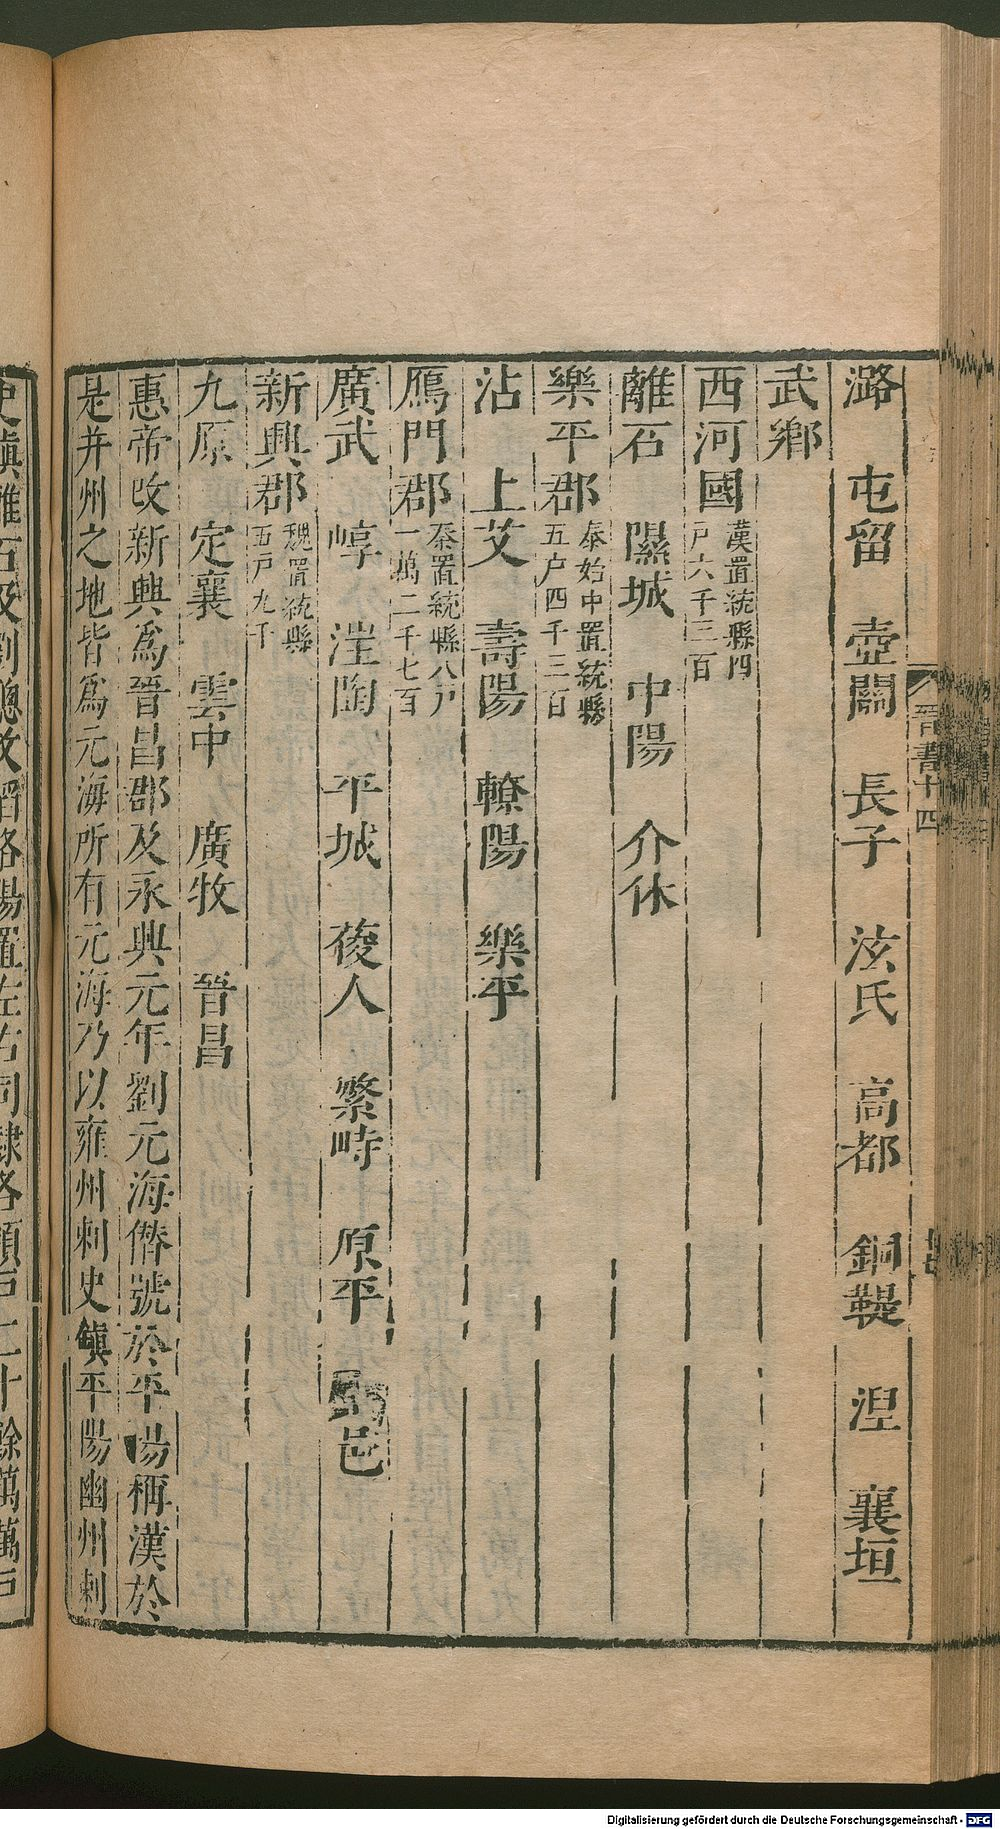 晉書十四
潞　屯留　壺關　長子　泫氏　高都　銅鞮　涅　襄垣
武鄉
西河國漢置統縣四
戶六千三百
離石　隰城　中陽　介休
樂平郡泰始中置統縣
五户四千三百
沾　上艾　壽陽　轑陽　樂平
鴈門郡秦置統縣八戶
一萬二千七百
廣武　崞　㳷陶　平城　葰人　繁畤　原平　馬邑
新興郡魏置統縣
五戸九千
九原　定襄　雲中　廣牧　晉昌
惠帝改新興爲晉昌郡及永興元年劉元海僭號於平陽稱漢於
是并州之地皆爲元海所有元海乃以雍州刺史鎮平陽幽州刺
史鎮離石及劉聰攻陷洛陽置左右司隸各領戸二十餘萬萬戸
Digitalisierung gefördert durch die Deutsche Forschungsgemeinschaft - DFG